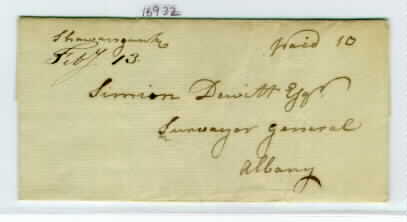 16932
Shawangunk
Feby 13.
paid 10
Simion Dewitt Esqr
Surveyor General
Albany